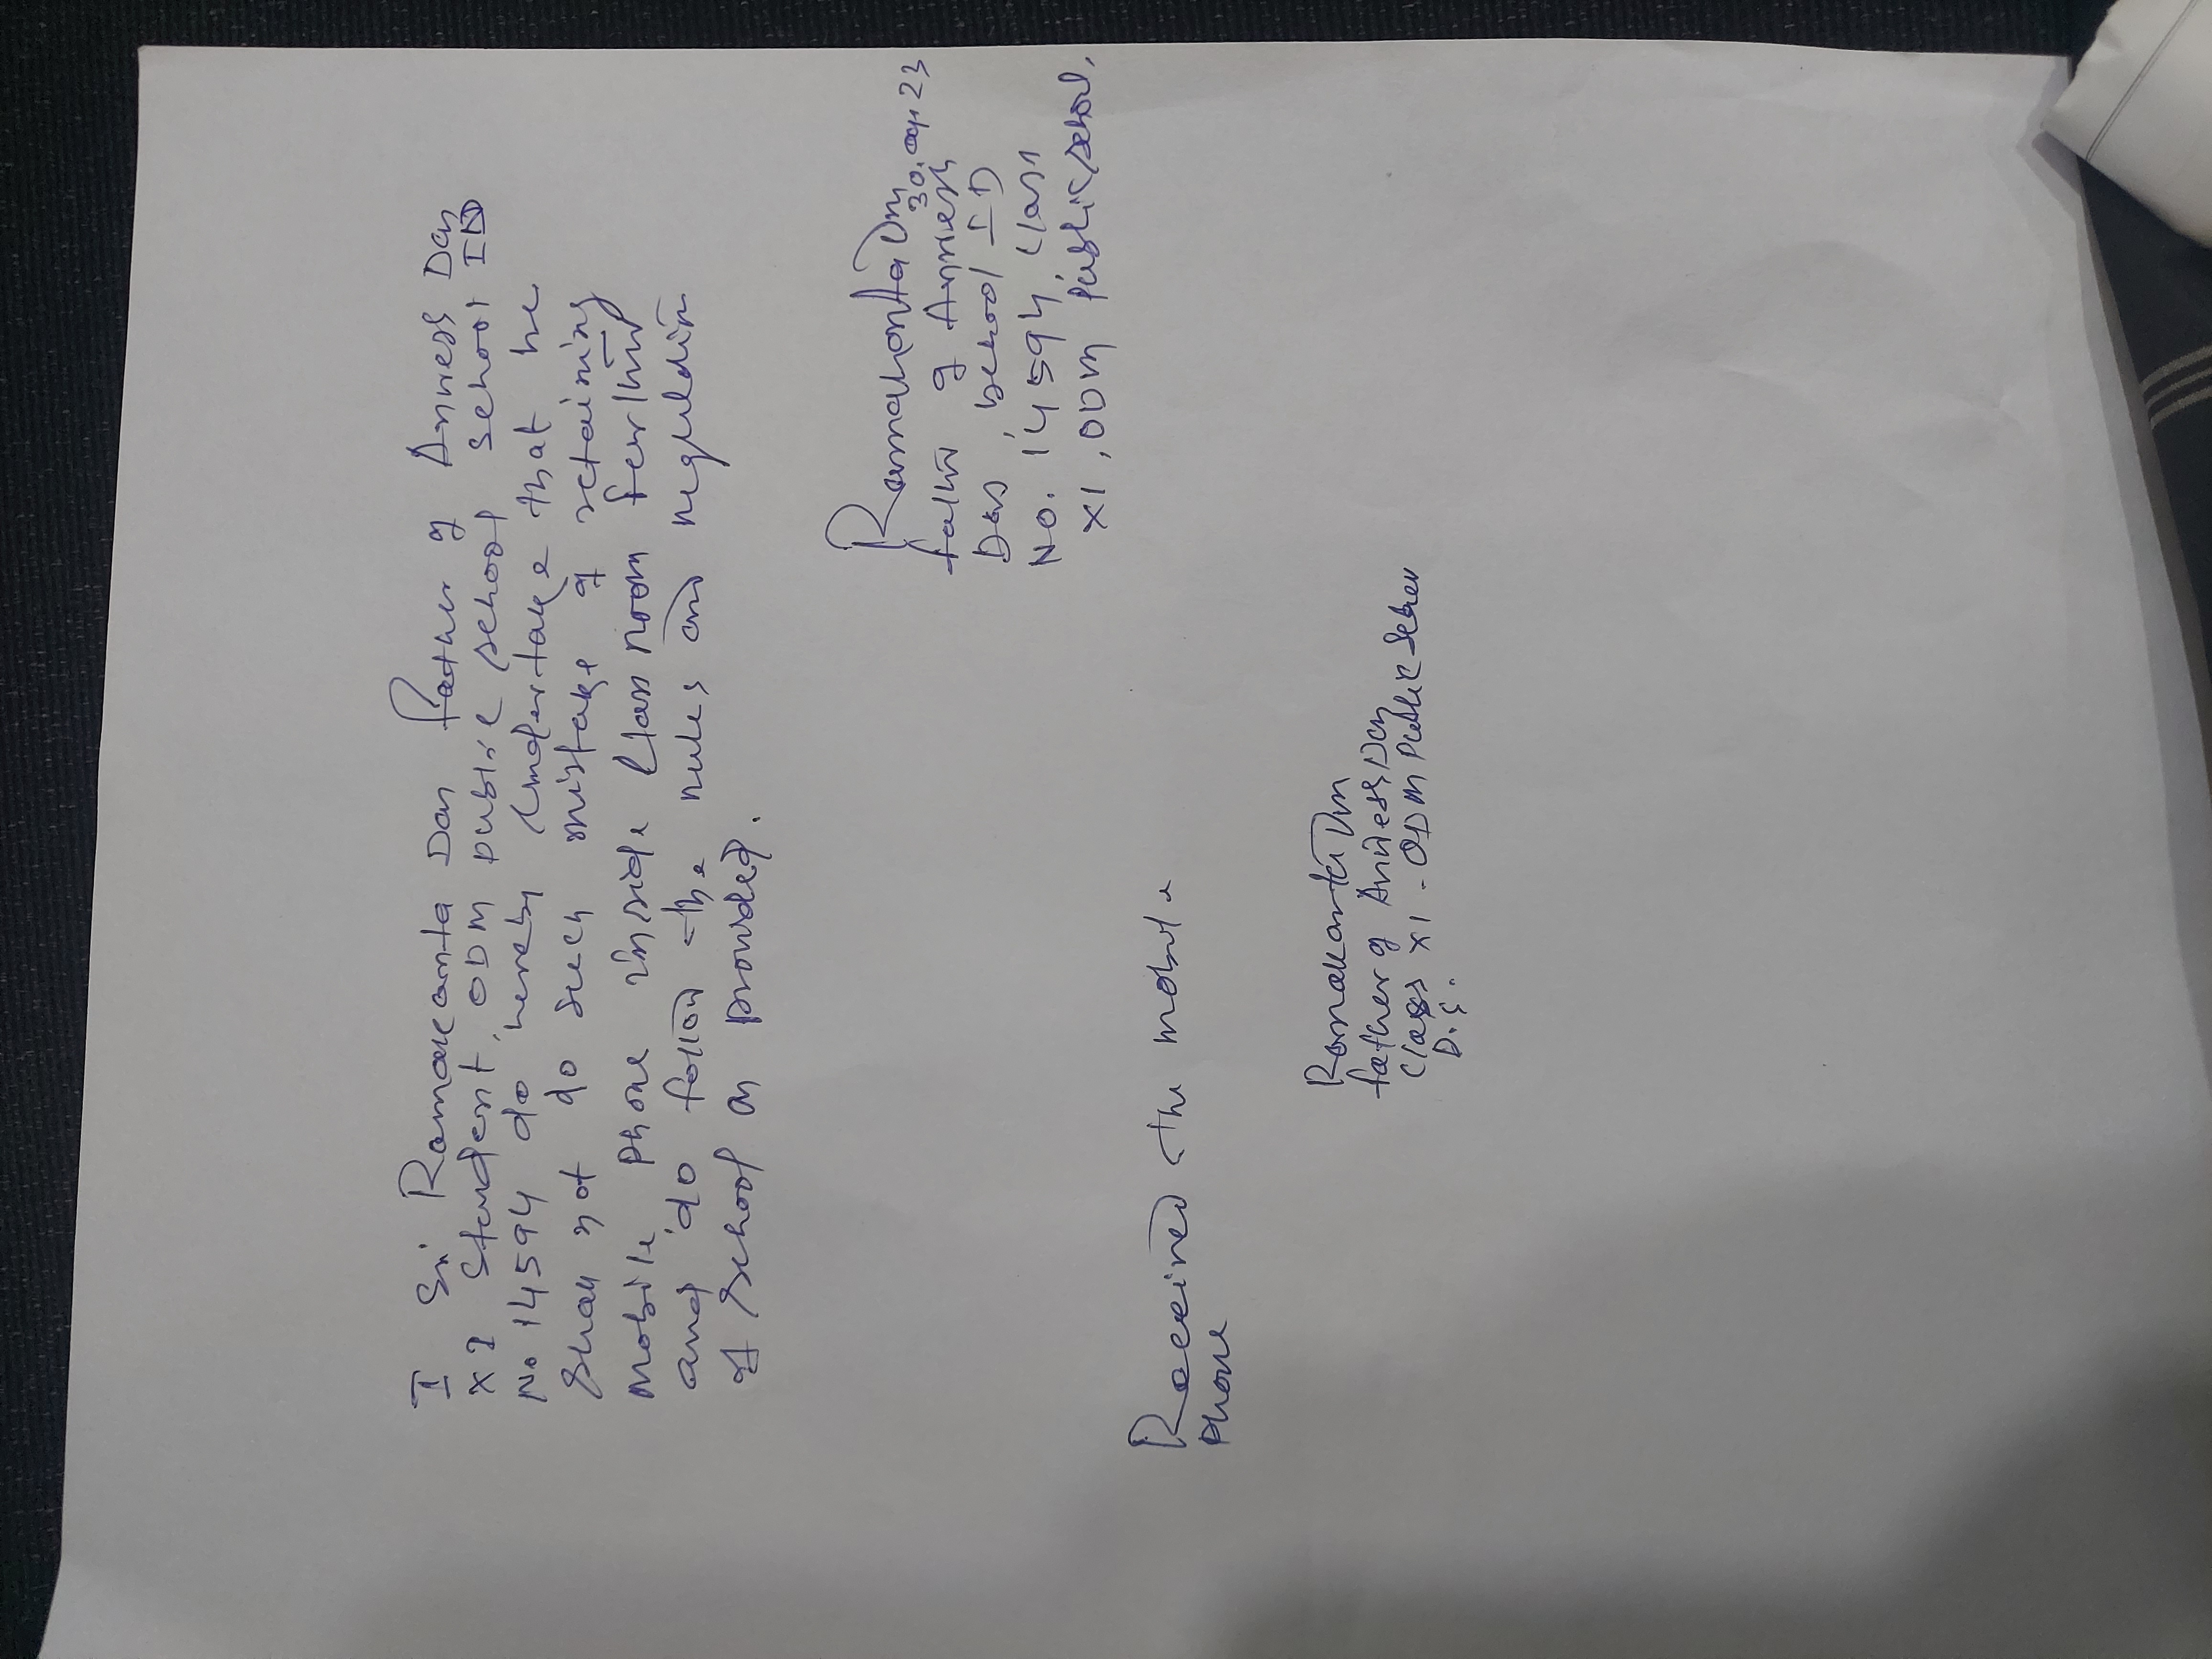 I Sri Ramakanta Das Father of Anness Das
XI Student, ODM public school school ID
No 14594 do hereby undertake that he
shall not do such mistake of retaining
mobile phone inside class room further
and do follow the rules and regulation
of school as provided.
Ramakanta Das
30.09.23
father of Anness
Das, school ID
No. 14594 class
XI, ODM Public school,
Received the mobile
phone
Ramakanta Das
father of Anness Das
Class XI - ODM Public School